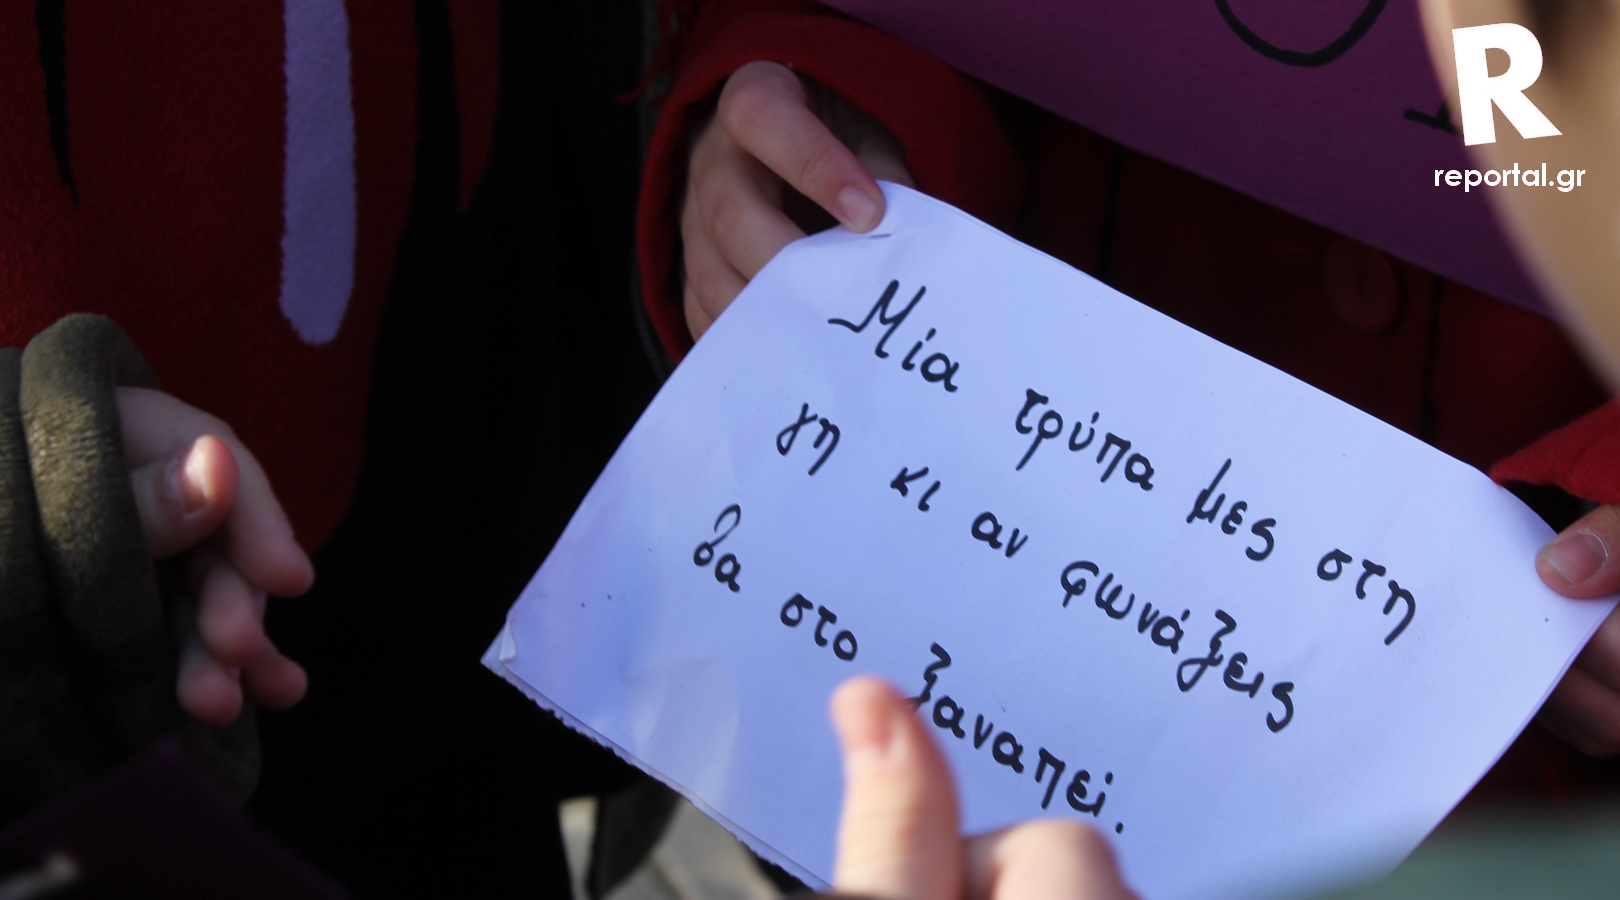 R
reportal.gr
Μία τρύπα μες στη
γη κι αν φωνάξεις
θα στο ξαναπεί.